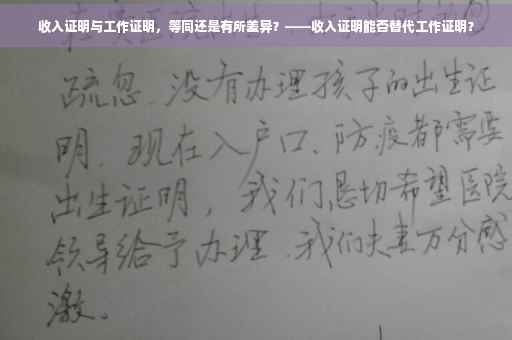 收入证明与工作证明，等同还是有所差异？——收入证明能否替代工作证明？
疏忽、没有办理孩子的出生证
明、现在入户口、防疫都需要
出生证明，我们恳切希望医院
领导给予办理、我们夫妻万分感
激。